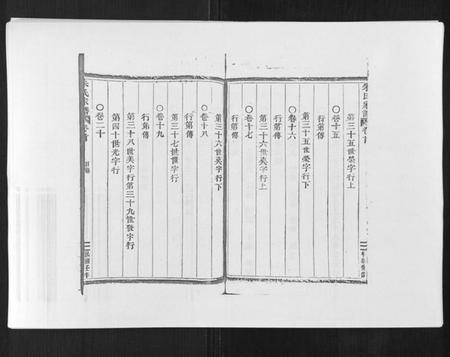 第三十五世榮字行上
○卷十五
行第傳
第三十五世榮字行下
○卷十六
行第傳
第三十六世英字行上
○卷十七
行第傳
第三十六世英字行下
○卷十八
行第傳
第三十七世世字行
○卷十九
行第傳
第三十八世美字行第三十九世發字行
第四十世光字行
○卷二十